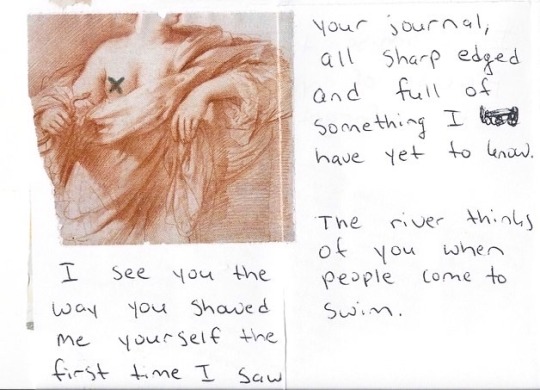 I see you the
way you showed
me yourself the
first time I saw
your journal,
all sharp edged
and full of
something I
have yet to know.
The river thinks
of you when
people come to
swim.